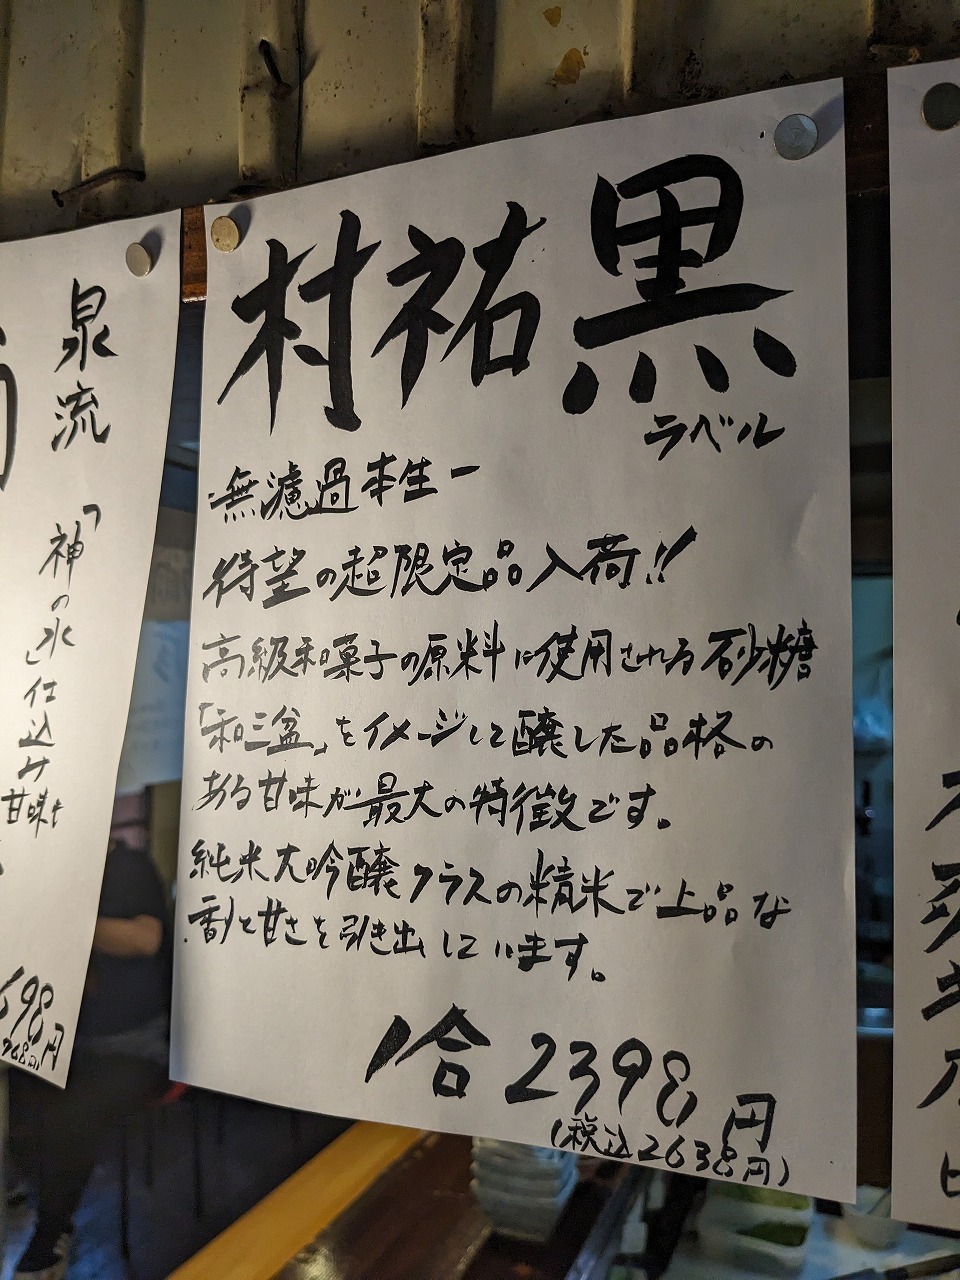 村祐黒
ラベル
無濾過本生ー
待望の超限定品入荷!!
高級和菓子の原料に使用される砂糖
「和三盆」をイメージして醸した品格の
ある甘味が最大の特徴です。
純米大吟醸クラスの精米で上品な
香りと甘さを引き出しています。
1合 2398円
(税込2638円)
泉流
「神の水」仕込み
甘味を
598円